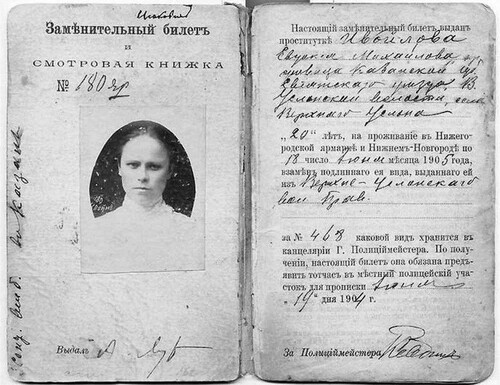 Замѣнительный билетъ
и
СМОТРОВАЯ КНИЖКА
№ 180 яр
Выдалъ
Настоящій замѣнительный билетъ выданъ
проституткѣ Ивойлова
Евдокія Михайлова
Казанской
Свіяжскаго уѣзда, В.
Услонской волости, села
Верхняго Услона
„20“ лѣтъ, на проживаніе въ Нижего-
родской ярмаркѣ и Нижнемъ-Новгородѣ по
18 число іюня мѣсяца 1905 года,
взамѣнъ подлиннаго ея вида, выданнаго ей
изъ Верхне-Услонскаго
вол. Прав.
за № 463 каковой видъ хранится въ
канцеляріи Г. Полиціймейстера. По по-
лученіи, настоящій билетъ она обязана предъ-
явить тотчасъ въ мѣстный полицейскій уча-
стокъ для прописки іюня
„19“ дня 1904 г.
За Полиціймейстера